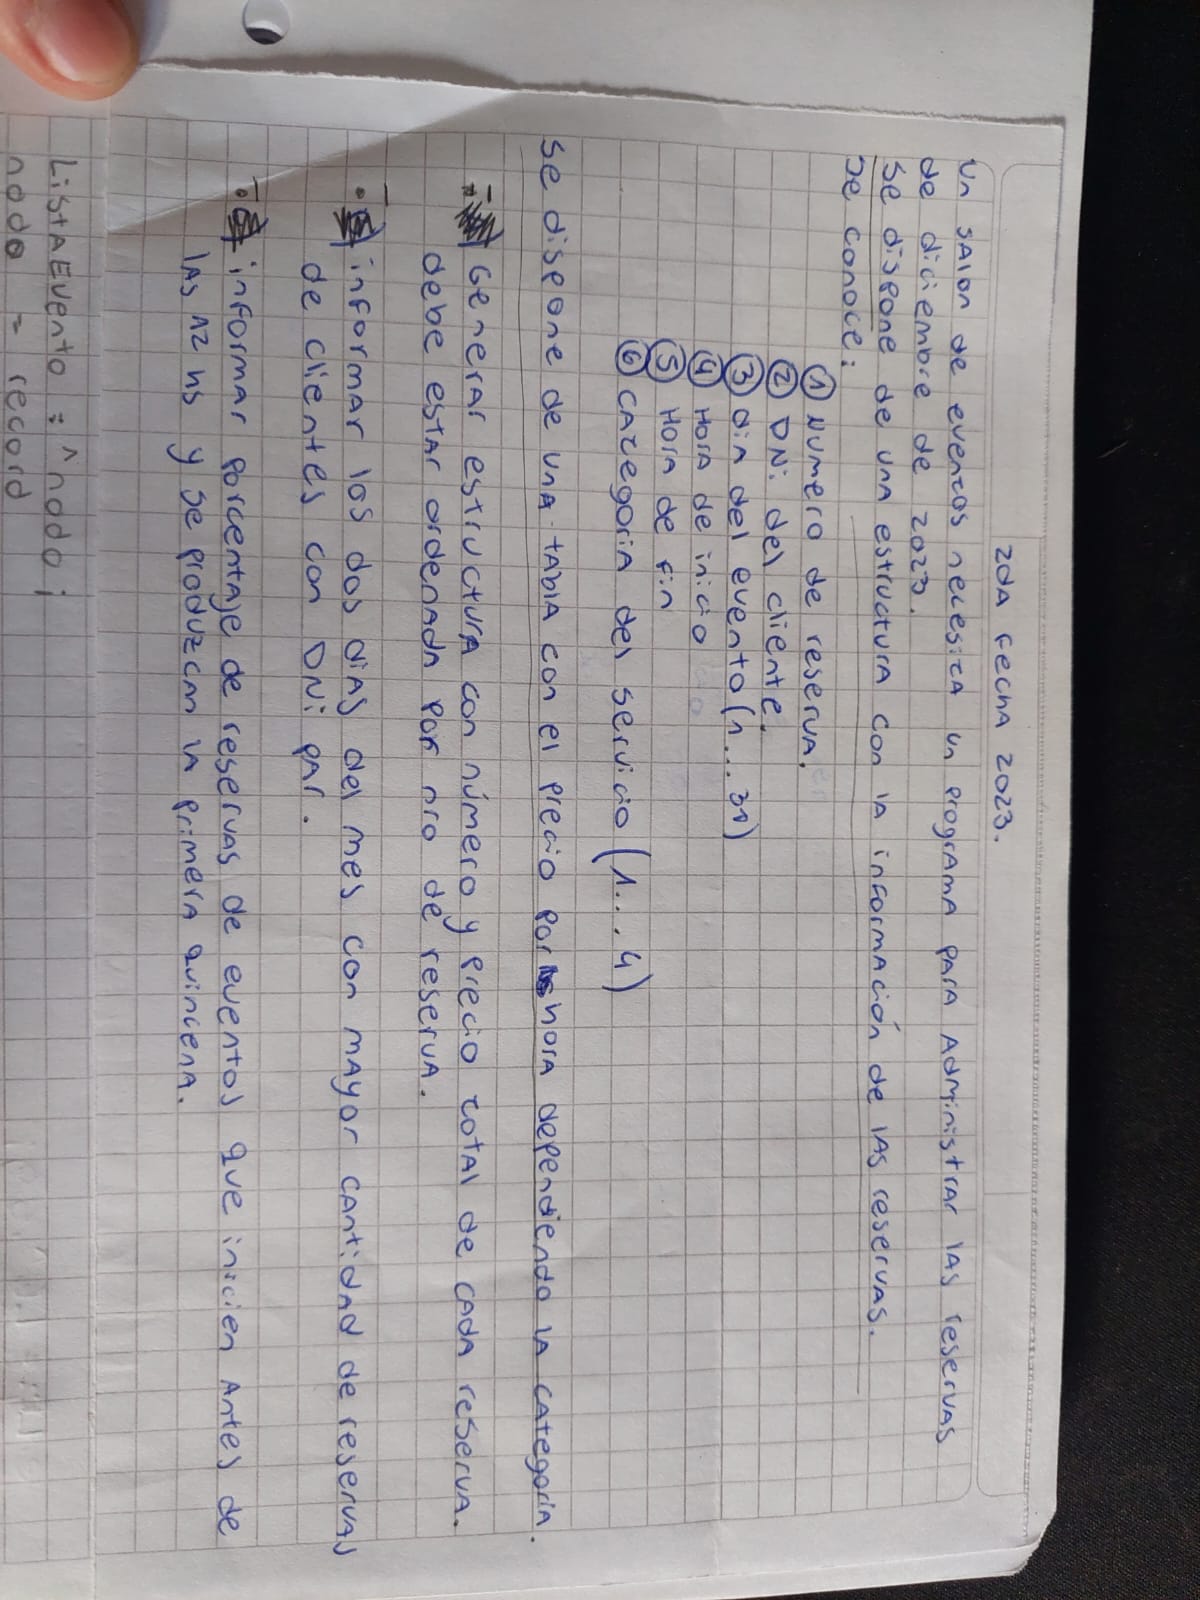 2da Fecha 2023.
Un salon de eventos necesita un programa para administrar las reservas
de diciembre de 2023.
se dispone de una estructura con la información de las reservas.
se conoce:
① Numero de reserva.
② DNi del cliente.
③ dia del evento (1...31)
④ Hora de inicio
⑤ Hora de fin
⑥ categoria del servicio (1...4)
se dispone de una tabla con el precio por hora dependiendo la categoria.
- Generar estructura con número y precio total de cada reserva.
debe estar ordenada por nro de reserva.
- informar los dos dias del mes con mayor cantidad de reservas
de clientes con DNi par.
- informar porcentaje de reservas de eventos que inicien antes de
las 12 hs y se produzcan la primera quincena.
ListaEvento = ^nodo;
nodo = record